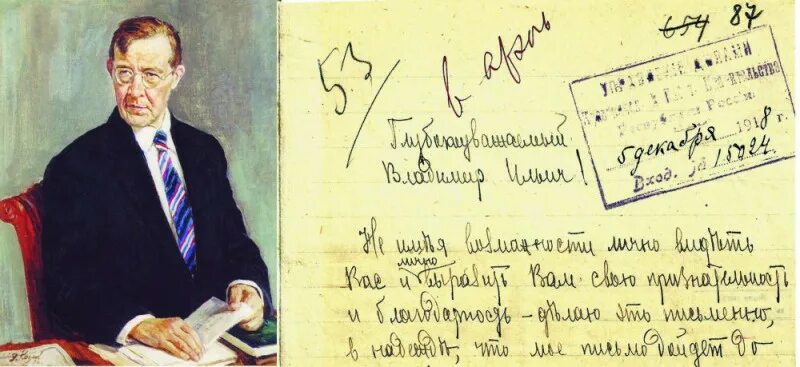 654 87
53
в арх
УПРАВЛЕНІЕ ДѢЛАМИ
Правительства
Республики Россіи
5 декабря 1918
Вход. № 15024
Глубокоуважаемый
Владимир Ильич!
Не имѣя возможности лично видѣть
Вас и лично выразить Вам свою признательность
и благодарность – дѣлаю это письменно,
в надежде, что мое письмо дойдет до